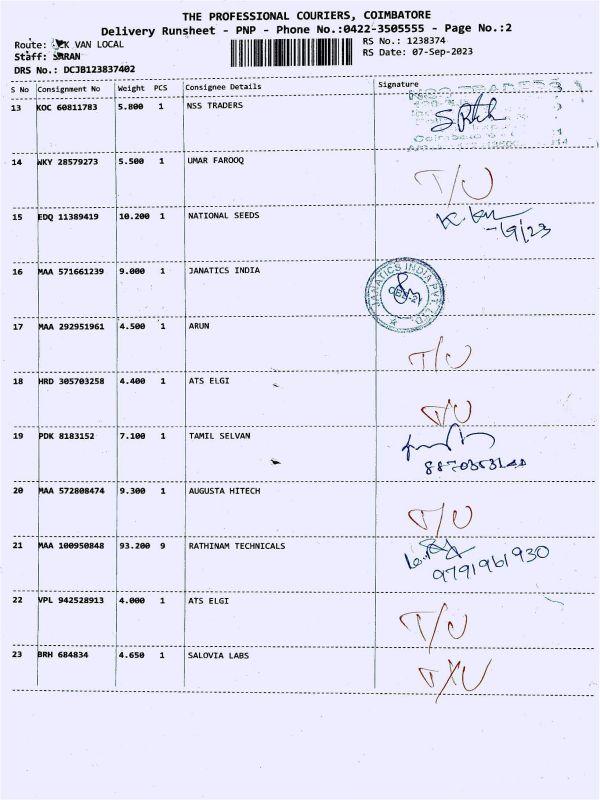 THE PROFESSIONAL COURIERS, COIMBATORE
Delivery Runsheet - PNP - Phone No.:0422-3505555 - Page No.:2
Route: VAN LOCAL
RS No.: 1238374
Staff: SARAN
RS Date: 07-Sep-2023
DRS No.: DCJB123837402
S No Consignment No Weight PCS Consignee Details Signature
13 KOC 60811783 5.800 1 NSS TRADERS
14 WKY 28579273 5.500 1 UMAR FAROOQ T/U
15 EDQ 11389419 10.200 1 NATIONAL SEEDS
16 MAA 571661239 9.000 1 JANATICS INDIA JANATICS INDIA PVT. LTD.
17 MAA 292951961 4.500 1 ARUN T/U
18 HRD 305703258 4.400 1 ATS ELGI T/U
19 PDK 8183152 7.100 1 TAMIL SELVAN
20 MAA 572808474 9.300 1 AUGUSTA HITECH T/U
21 MAA 100950848 93.200 9 RATHINAM TECHNICALS
9791961930
22 VPL 942528913 4.000 1 ATS ELGI T/U
23 BRH 684834 4.650 1 SALOVIA LABS T/U